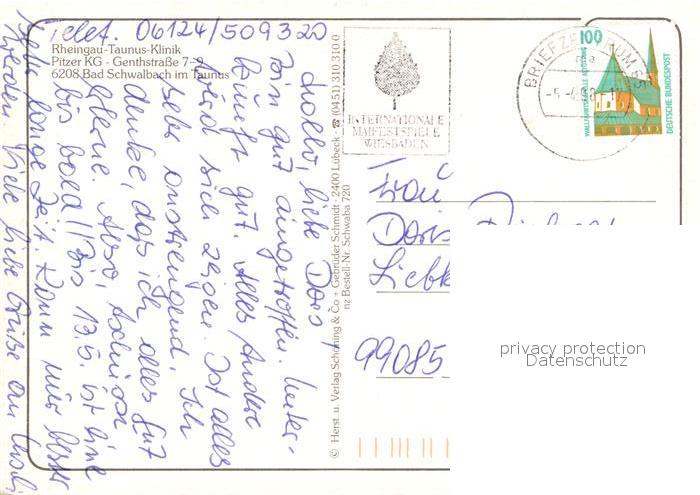 Telef. 06124/509320
Rheingau-Taunus-Klinik
Pitzer KG · Genthstraße 7-9
6208 Bad Schwalbach im Taunus
Hallo, liebe Doris,
bin gut eingetroffen. Unter-
kunft gut. Alles Andere
wird sich zeigen. Ist alles
sehr anstrengend. Ich
denke, daß ich alles gut
lerne. Also, tschüss
bis bald!! Bis 13.5. ist eine
lange Zeit. Kann nur besser
werden. Viele liebe Grüße an
© Herst. u. Verlag Schöning & Co + Gebrüder Schmidt · 2400 Lübeck · ☎ (0451) 310 310 0
nz Bestell-Nr. Schwaba 720
INTERNATIONALE
MAIFESTSPIELE
WIESBADEN
BRIEFZENTRUM 65
100
WALLFAHRTSKAPELLE ALTÖTTING
DEUTSCHE BUNDESPOST
Frau
Doris
Liebk
99085
privacy protection
Datenschutz